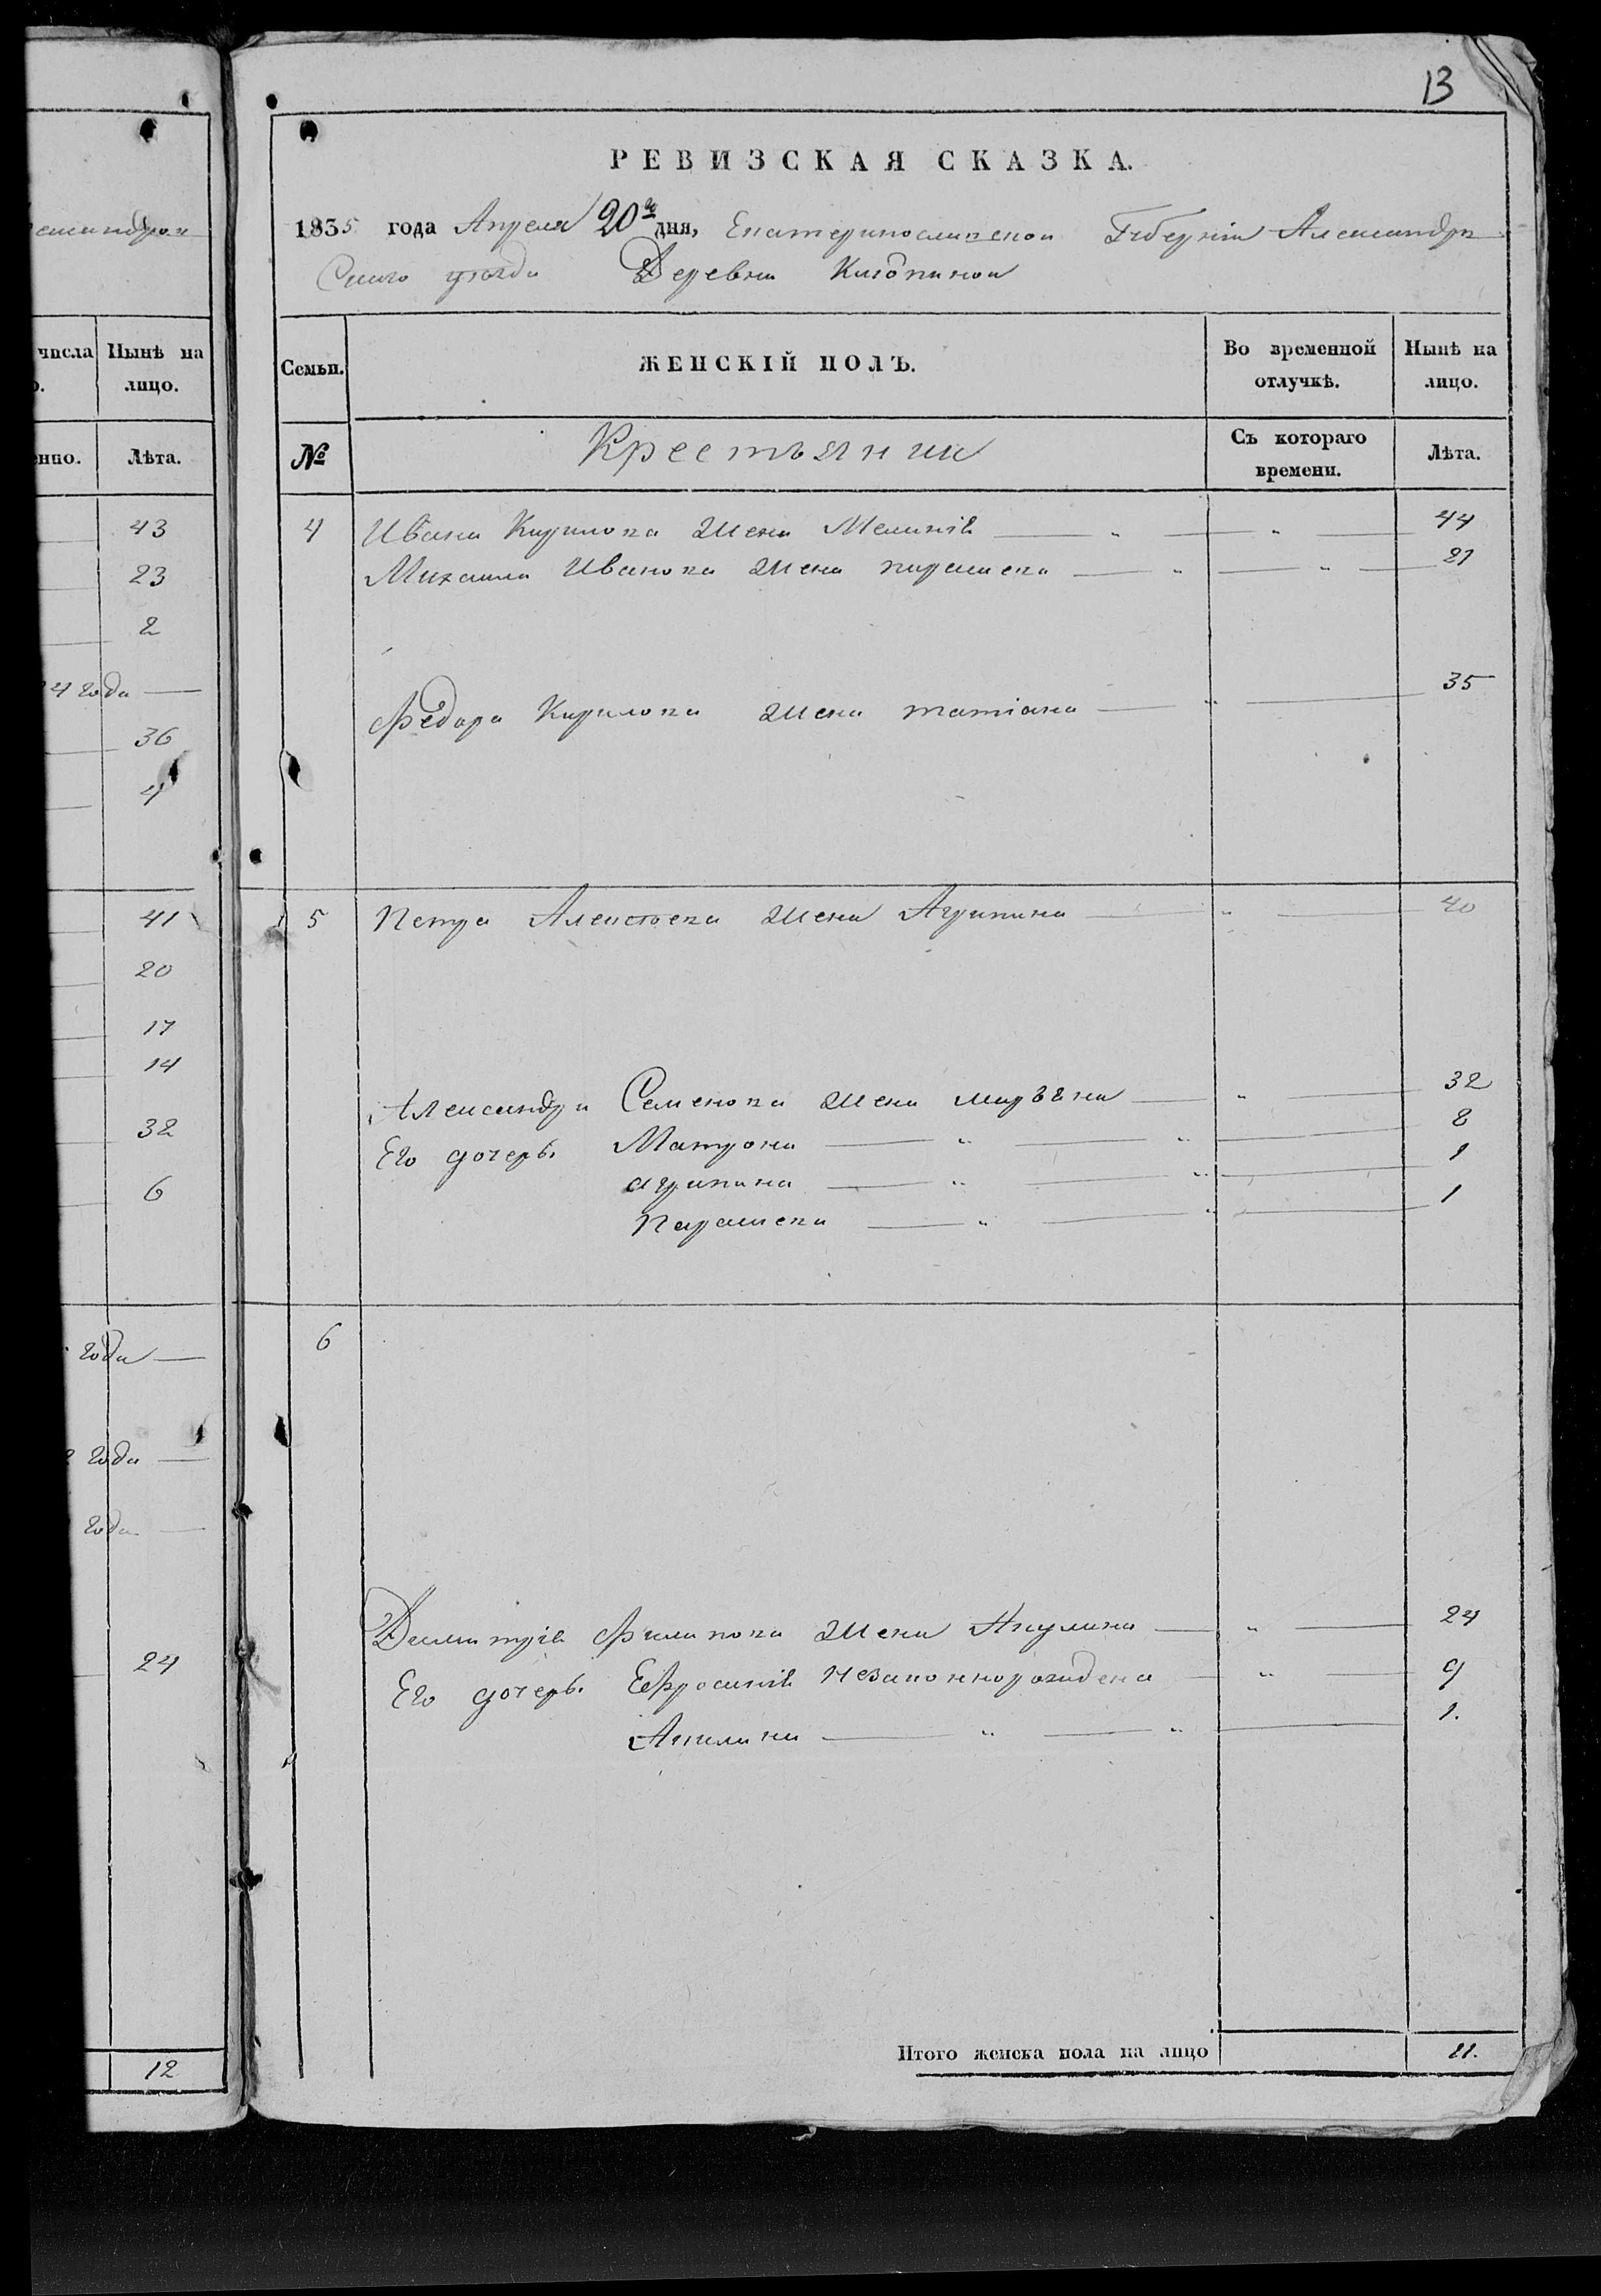 13
РЕВИЗСКАЯ СКАЗКА.
1835 года Апреля 20го дня, Екатеринославской Губернiи Александров
Скаго уѣзда Деревни
Семьи.
ЖЕНСКІЙ ПОЛЪ.
Во временной отлучкѣ.
Нынѣ на лицо.
№
Крестьянии
Съ котораго времени.
Лѣта.
4 Ивана Кирилова жена Меланiя 44
Михаила Иванова жена параскева 21
Федора Кирилова жена татiана 35
5 Петра Алексѣева жена Агрипина 40
Александра Семенова жена марѣена 32
Его дочерь Матрона 8
агрипина 1
Параскева 1
6
Дмитрiя Филипова жена Акулина 24
Его дочерь Ефросинiя незаконнорождена 9
Акилина 1.
Итого женска пола на лицо 11.
числа
Нынѣ на лицо.
Лѣта.
43
23
2
4 года
36
4
41
20
17
14
32
6
года
года
года
24
12